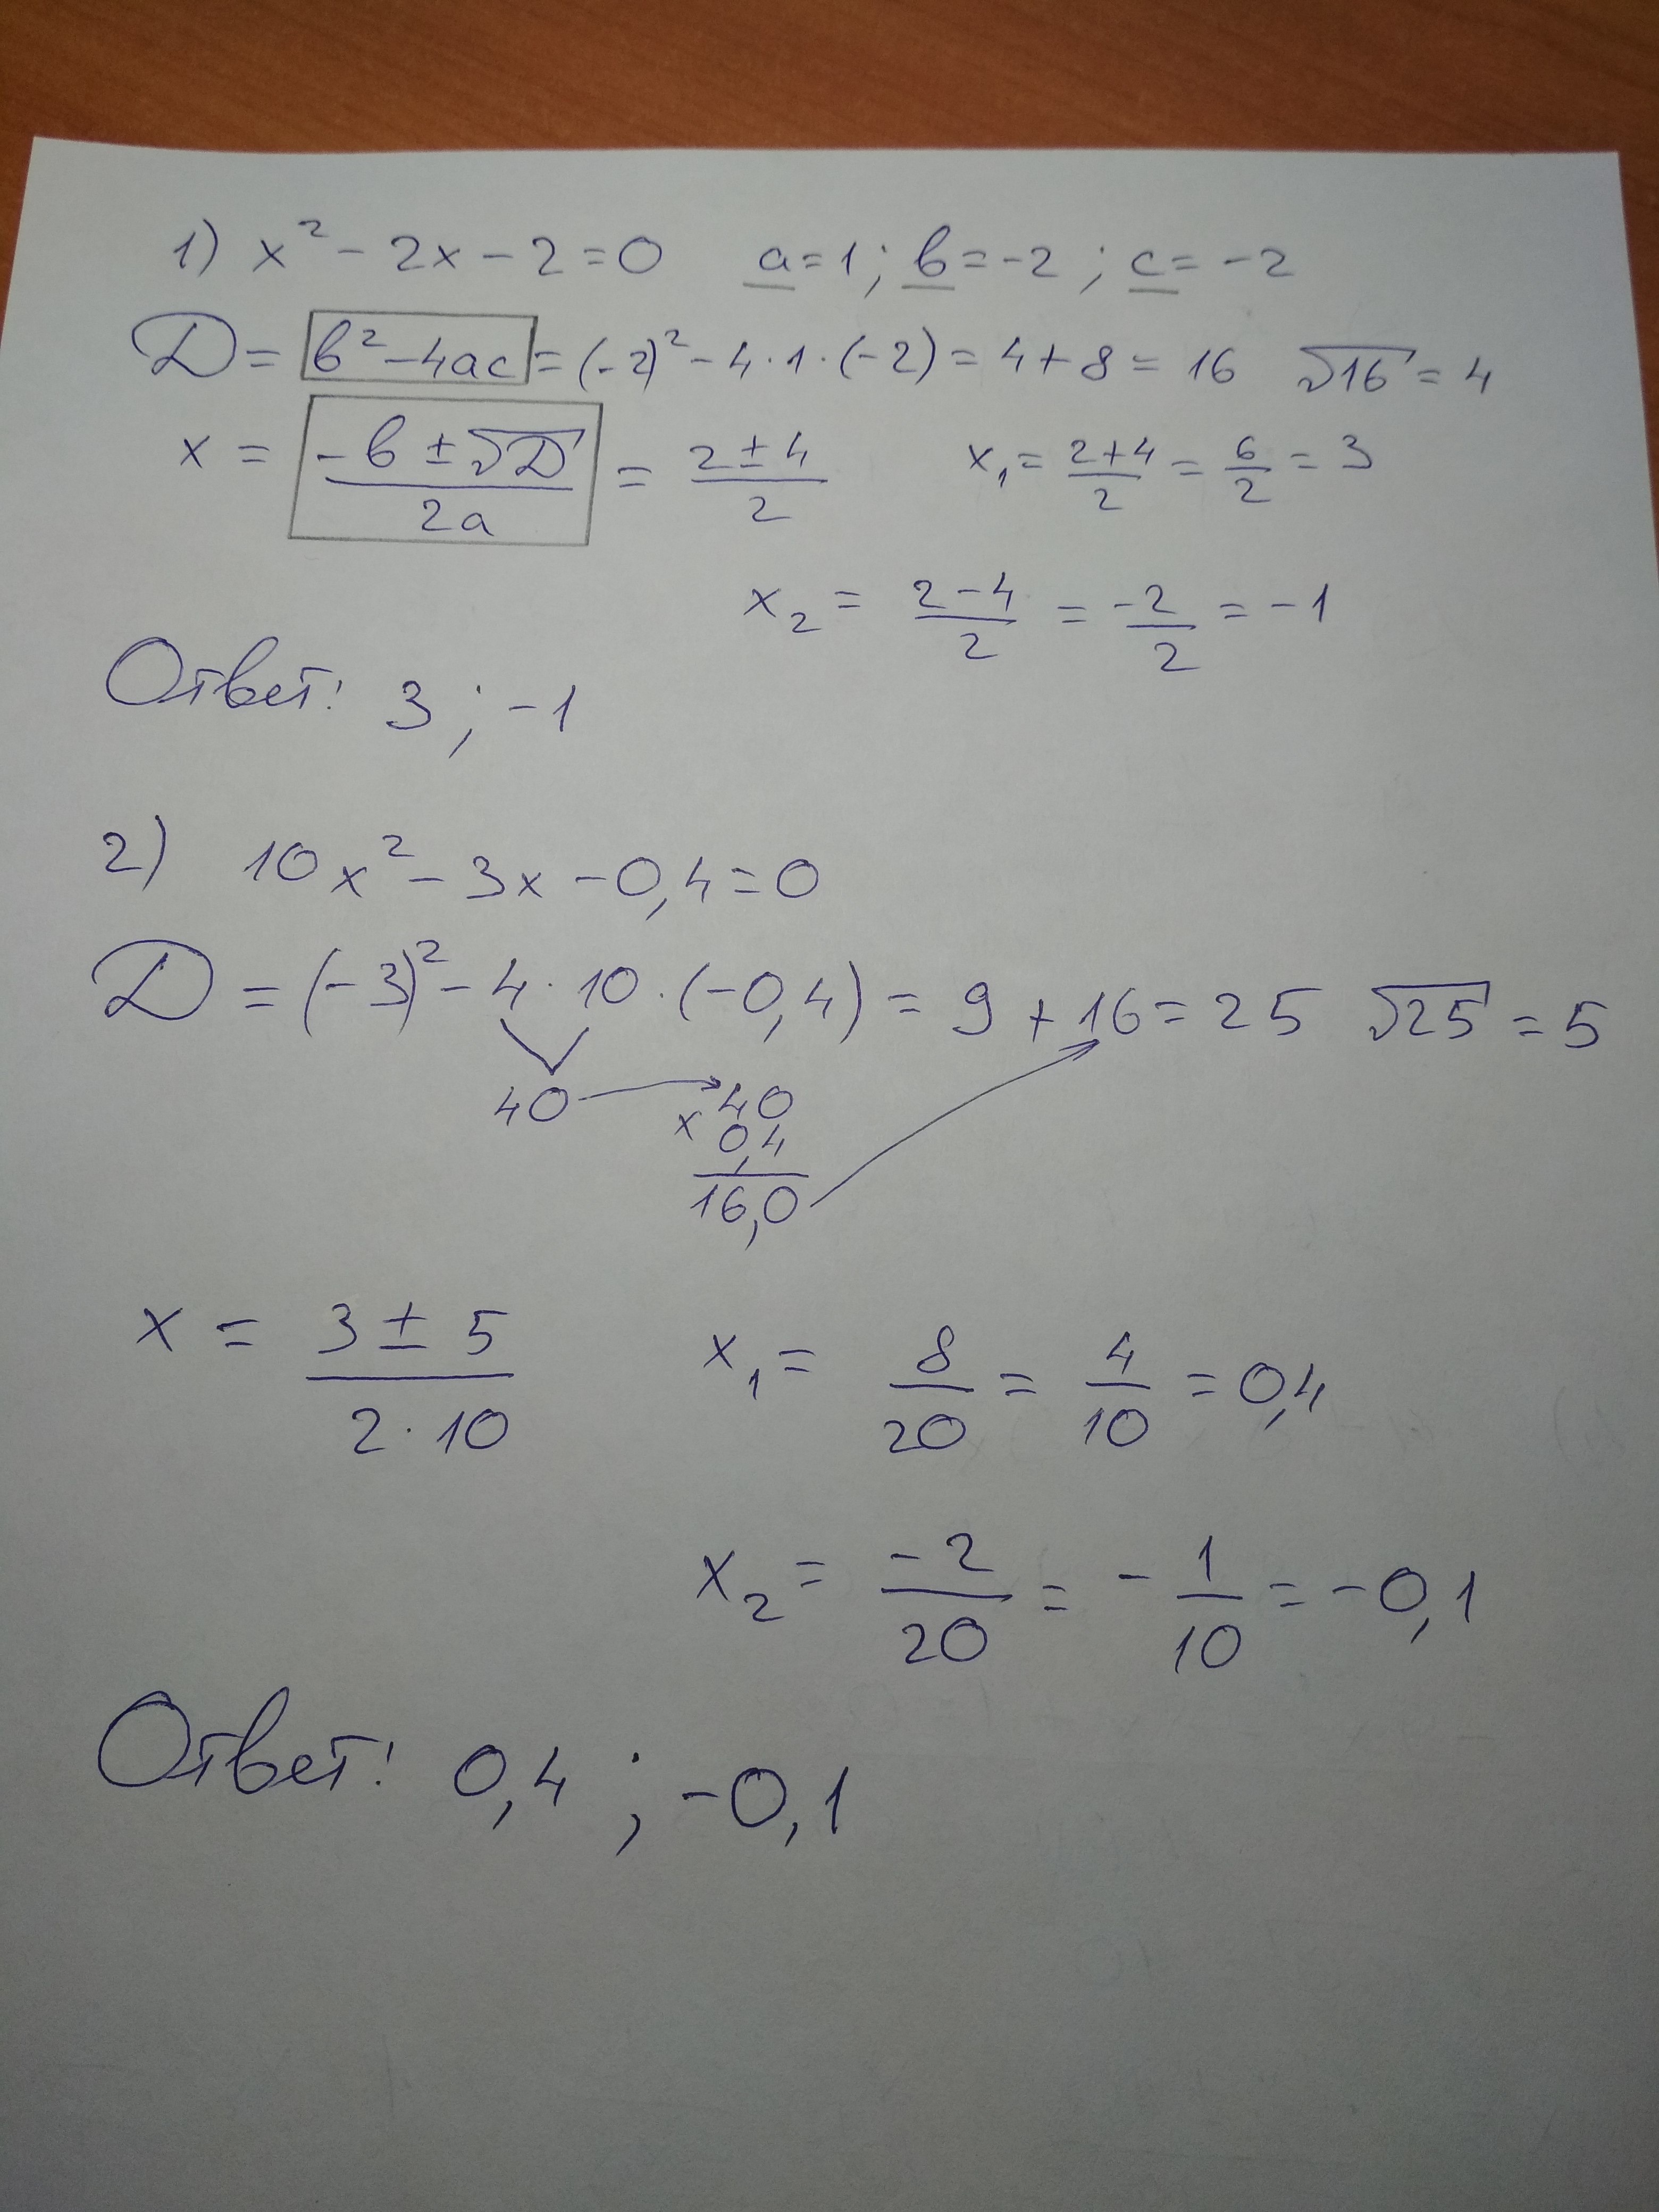 1) x² - 2x - 2 = 0 a = 1; b = -2; c = -2
D = b² - 4ac = (-2)² - 4 · 1 · (-2) = 4 + 8 = 16 √16 = 4
x = (-b ± √D)/(2a) = (2 ± 4)/2 x₁ = (2+4)/2 = 6/2 = 3
x₂ = (2-4)/2 = -2/2 = -1
Ответ: 3; -1
2) 10x² - 3x - 0,4 = 0
D = (-3)² - 4 · 10 · (-0,4) = 9 + 16 = 25 √25 = 5
40 → 40
x 0,4
16,0
x = (3 ± 5)/(2 · 10) x₁ = 8/20 = 4/10 = 0,4
x₂ = -2/20 = -1/10 = -0,1
Ответ: 0,4; -0,1